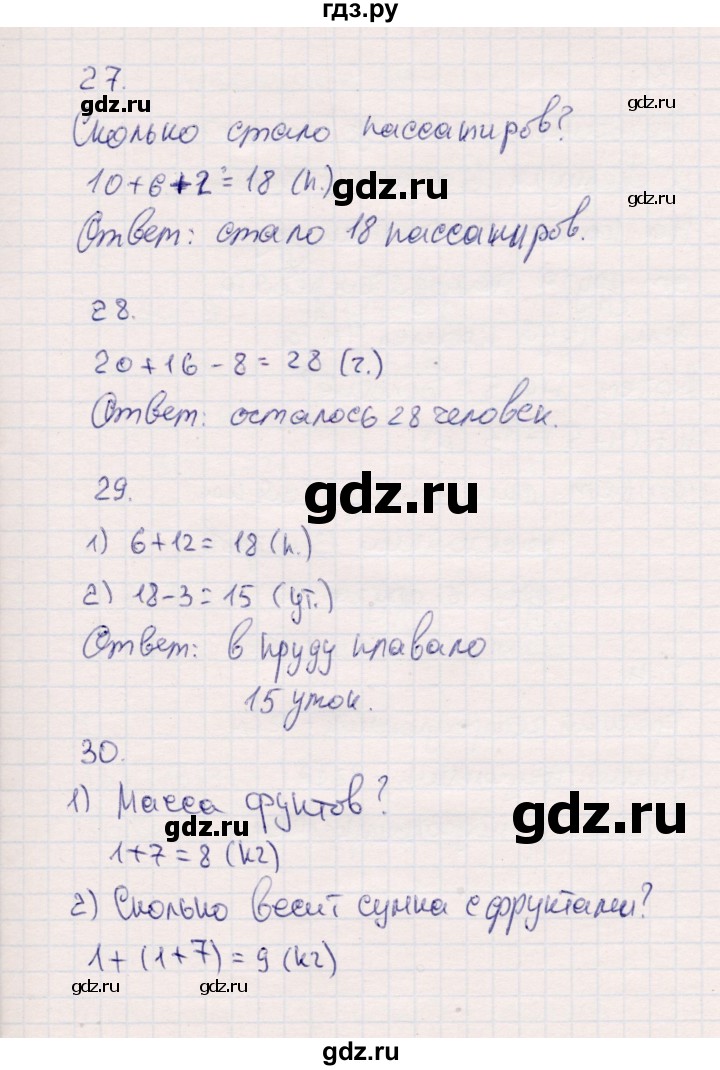 гдз.ру
27.
gdz.ru
gdz.ru
Сколько стало пассажиров?
10+6+2=18 (п.)
gdz.ru
gdz.ru
Ответ: стало 18 пассажиров.
28.
20+16-8=28 (ч.)
Ответ: осталось 28 человек.
29.
gdz.ru
1) 6+12= 18 (п.)
2) 18-3=15 (ут.)
Ответ: в пруду плавало
15 уток.
30.
1) Масса фуктов?
gdz.ru
gdz.ru
1+7=8 (кг)
2) Сколько весит сумка с фруктами?
1+(1+7)=9 (кг)
gdz.ru
gdz.ru
gdz.ru
gdz.ru